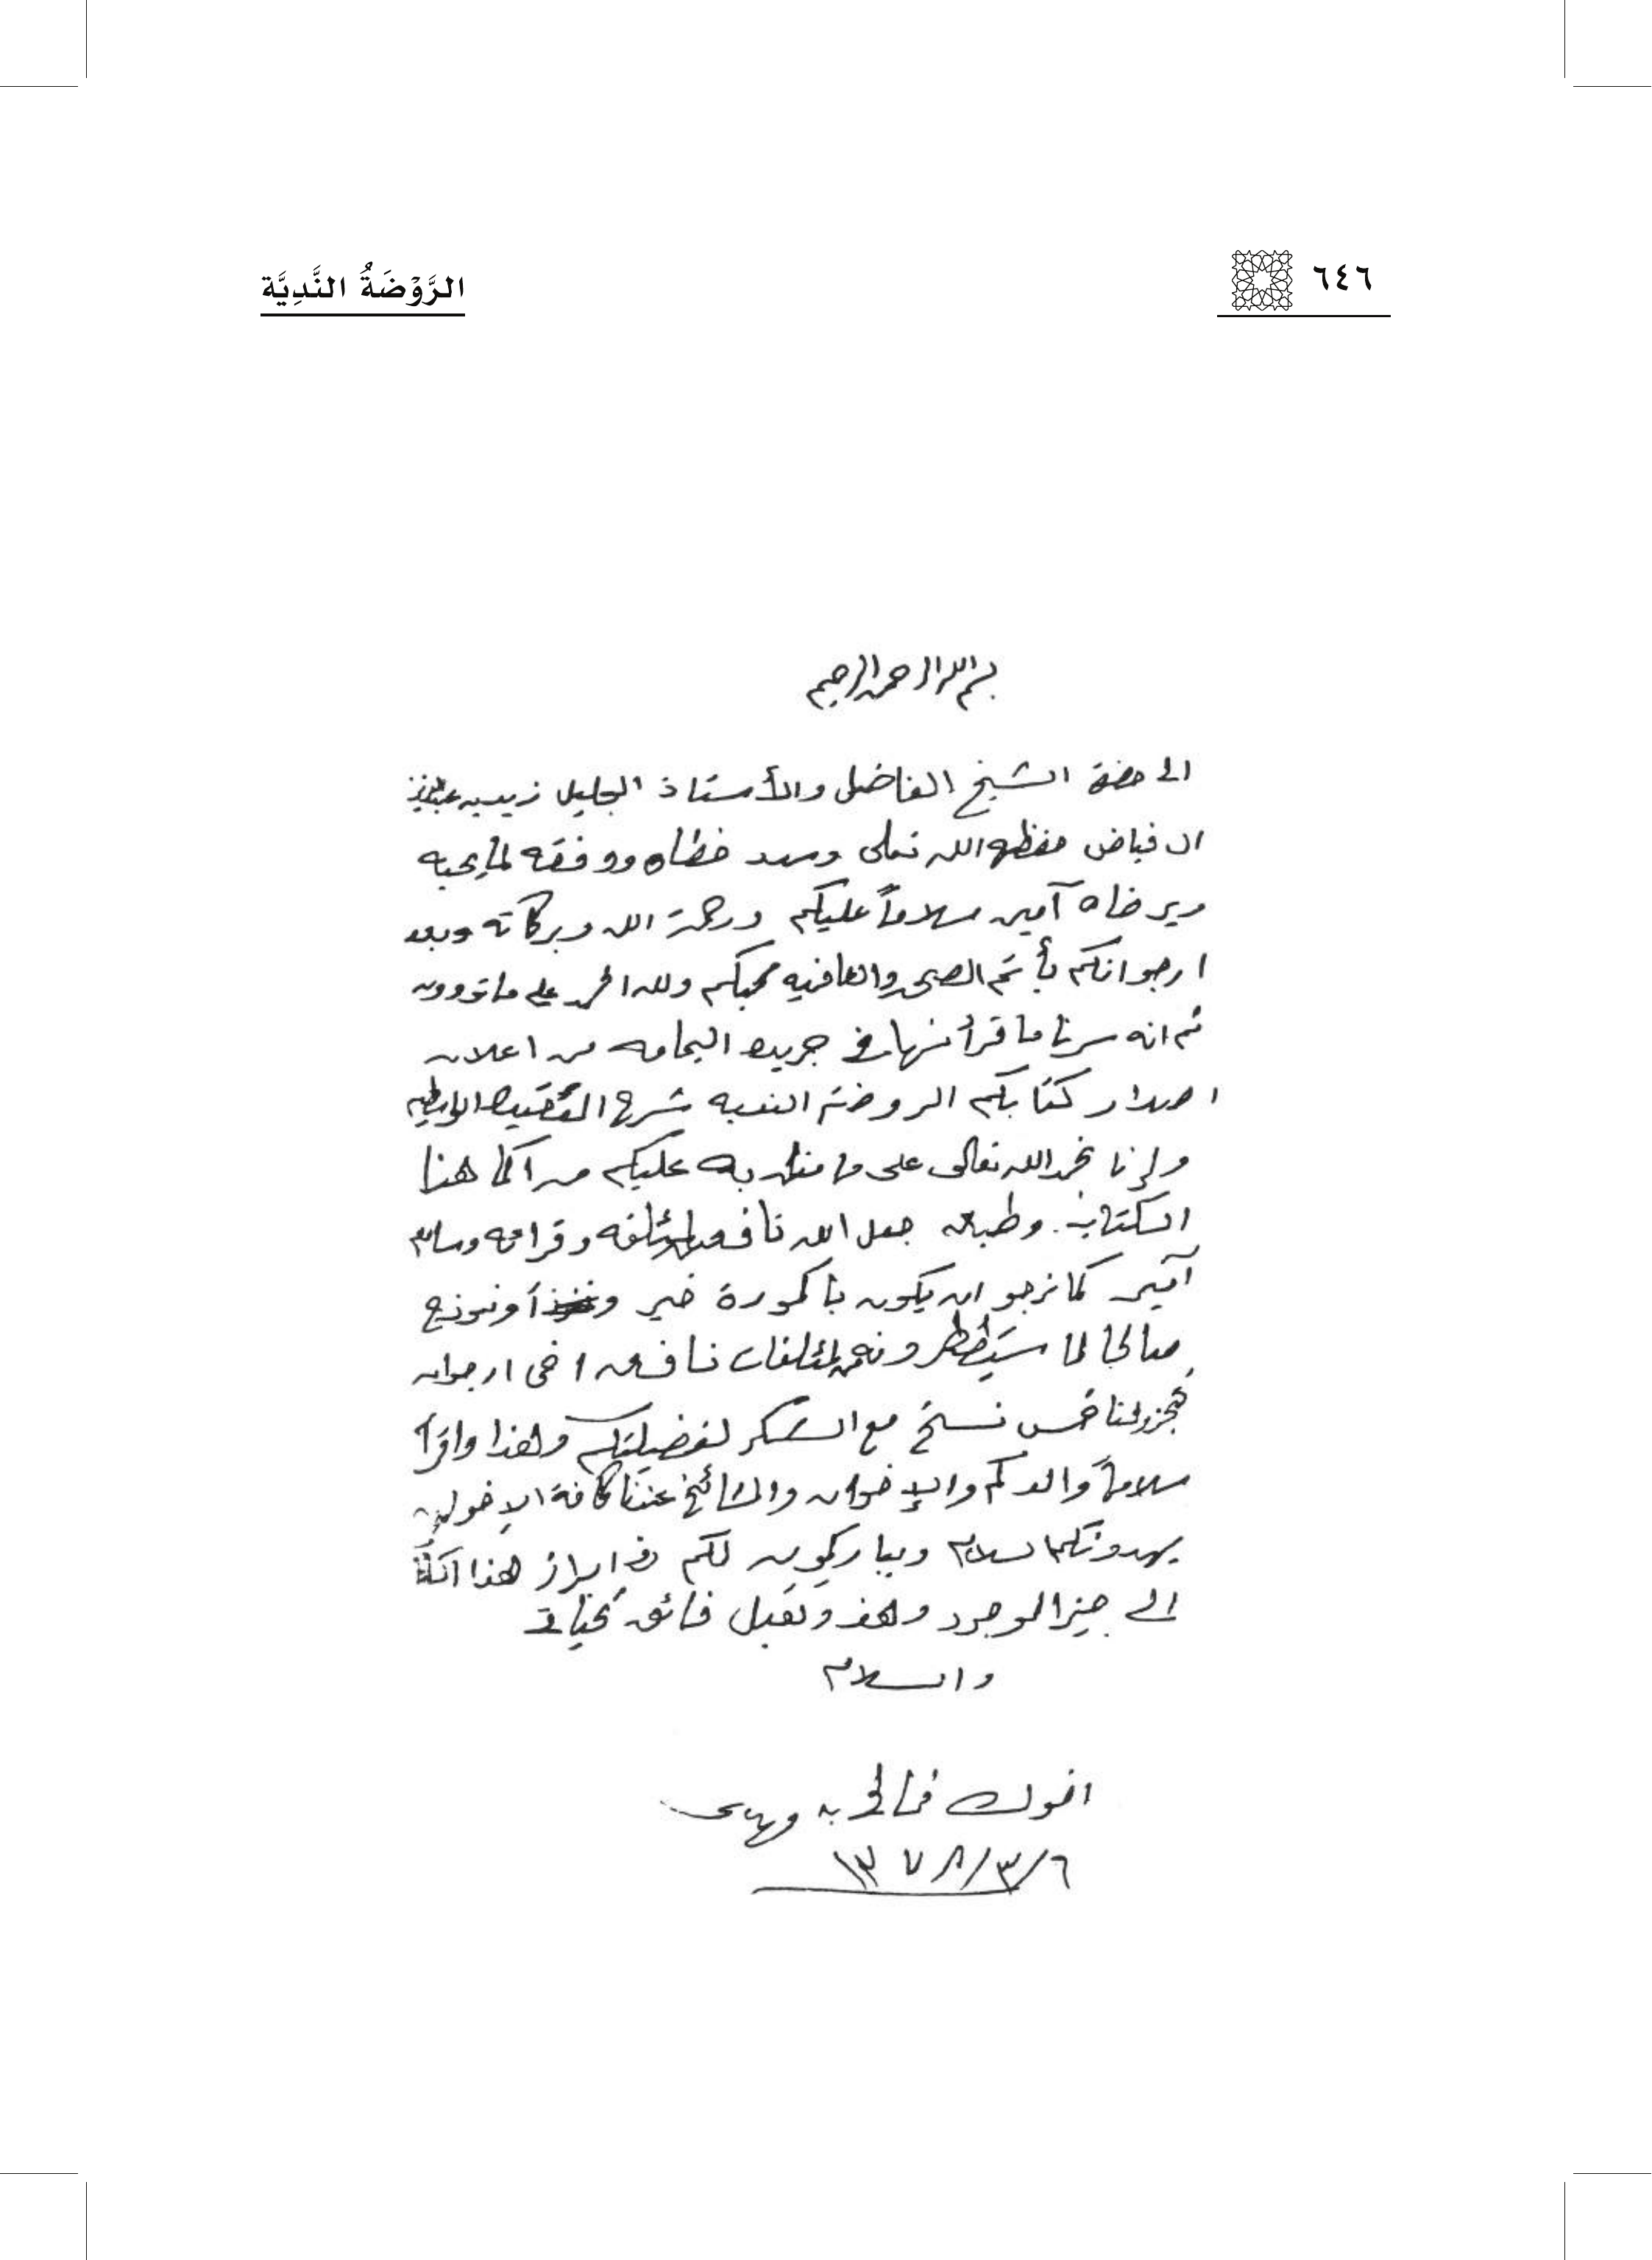 ٦٤٦
الرَّوْضَةُ النَّدِيَّة
بسم الله الرحمن الرحيم
الى حضرة الشيخ الفاضل والأستاذ الجليل زيد بن عبدالعزيز
ال فياض حفظه الله تعلى وسدد خطاه ووفقه لما يحبه
ويرضاه آمين سلاماً عليكم ورحمة الله وبركاته وبعد
ارجو انكم بأتم الصحه والعافيه محبكم ولله الحمد على ما تودون
ثم انه سرنا ما قرأنها في جريدة اليمامه من اعلان
اصدار كتابكم الروضة النديه شرح العقيدة الواسطيه
وإننا نحمد الله تعالى على ما من به عليكم من اكمال هذا
الكتاب وطبعه جعله الله نافعا لمؤلفه وقراءه وسامعه
آمين كما نرجو ان يكون باكورة خير ونموذج
صالحا لما ستظهرونه من مؤلفات نافعه اخي ارجو ان
تحجزو لنا خمس نسخ مع الشكر لفضيلتكم وهذا واقرأ
سلاماً والدكم والإخوان والمشائخ عندنا كافة الإخوان
يهدونكم السلام ويباركون لكم في ابراز هذا
الى حيز الموجود وهذ وتقبل فائق تحياتي
والسلام
اخوك فالح بن مهدي
١٣٧٨/٣/٦